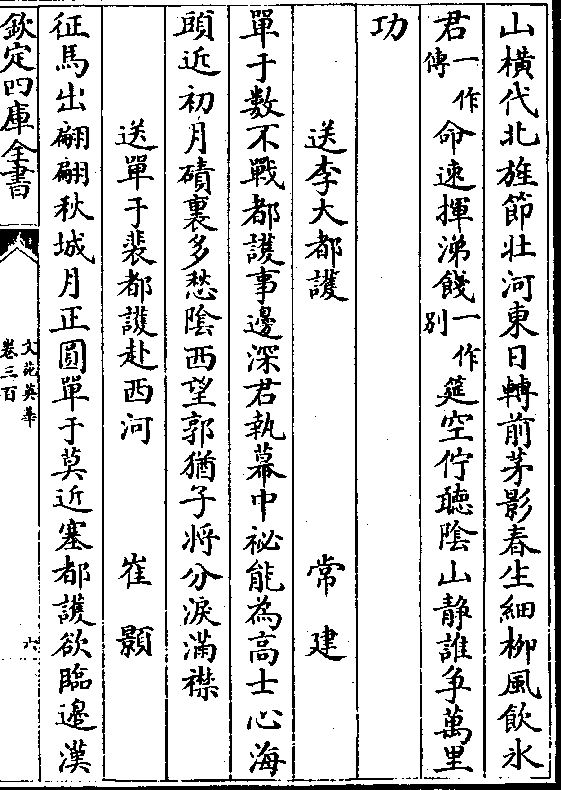 山橫代北旌節壯河東日轉前茅影春生細柳風飲氷
君一作傳命速揮涕餞一作别筵空佇聽隂山靜誰争萬里
功
送李大都護 常建
單于數不戰都護事邊深君執幕中祕能為高士心海
頭近初月磧裏多愁隂西望郭猶子將分淚滿襟
送單于裴都護赴西河 崔顥
征馬出翩翩秋城月正圓單于莫近塞都護欲臨邉漢
欽定四庫全書
文苑英華
卷三百
六